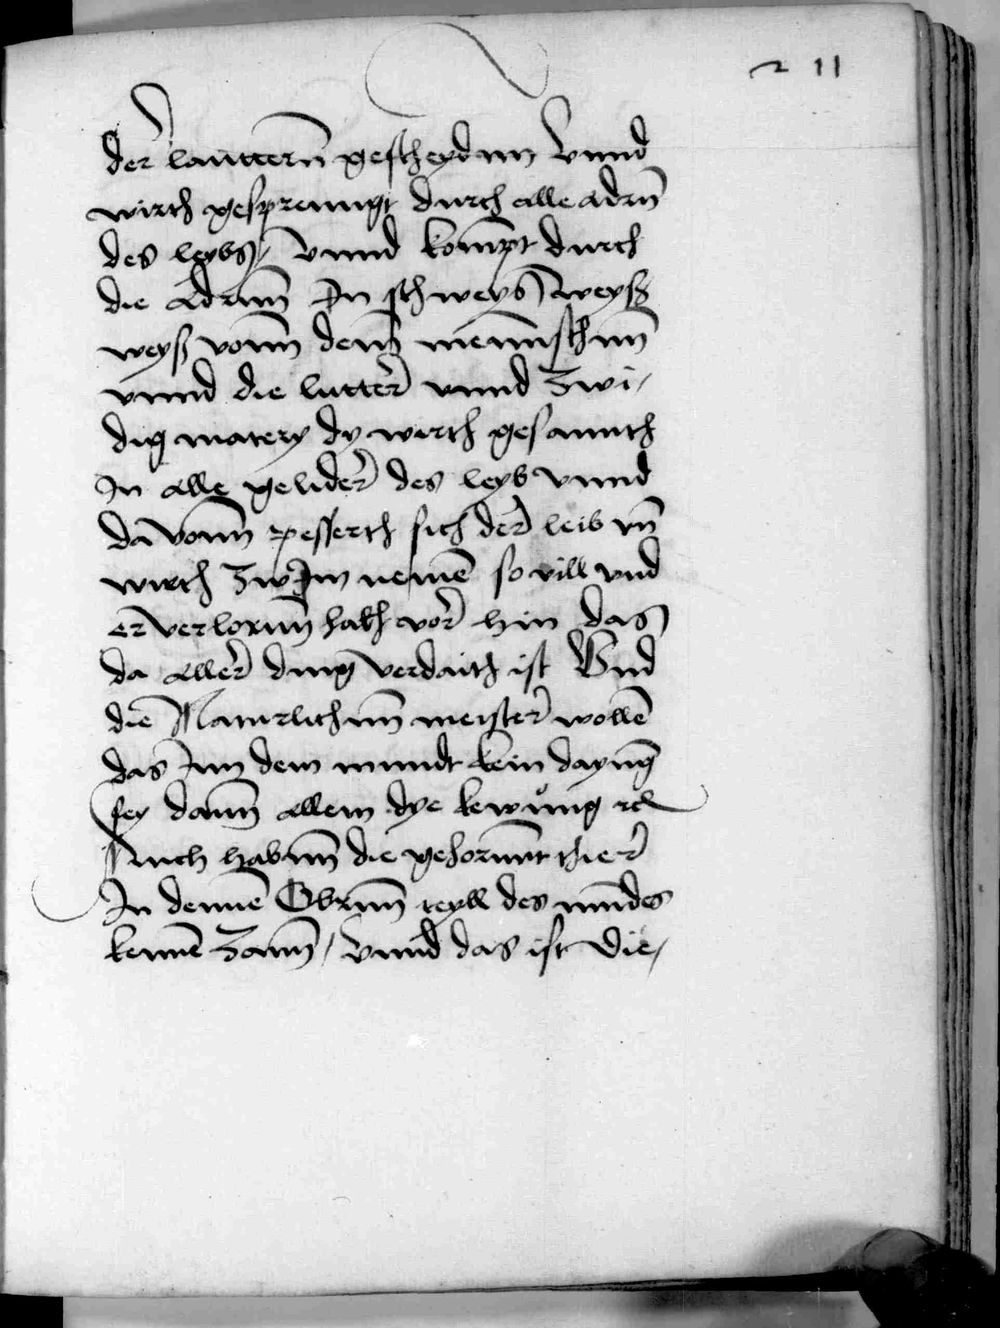 11
der lautternn gescheydnn Vnnd
wirth gesprenngt durch alle adrnn
des leybs / vnnd kompt durch
die Adrnnn In schweyß weyß
weyß vonn dem mennschnn
vnnd die lutter vnnd zwi /
dig matery dy wirth gesannth
In alle gelider des leyb vnnd
da vonn pesserth sich der leib vnn
wirth zw Im nemen so vill vnd
er verlornn hath vor hin das
da aller ding verdaith ist Vnd
die Naturlichnn meister wollen
das Inn dem mundt kein dayung
sey dann allein dye kewung
Auch habnn die gehornnt thier
In dennen Obrnn teyll des mundes
kennen zann / vnnd das ist die /